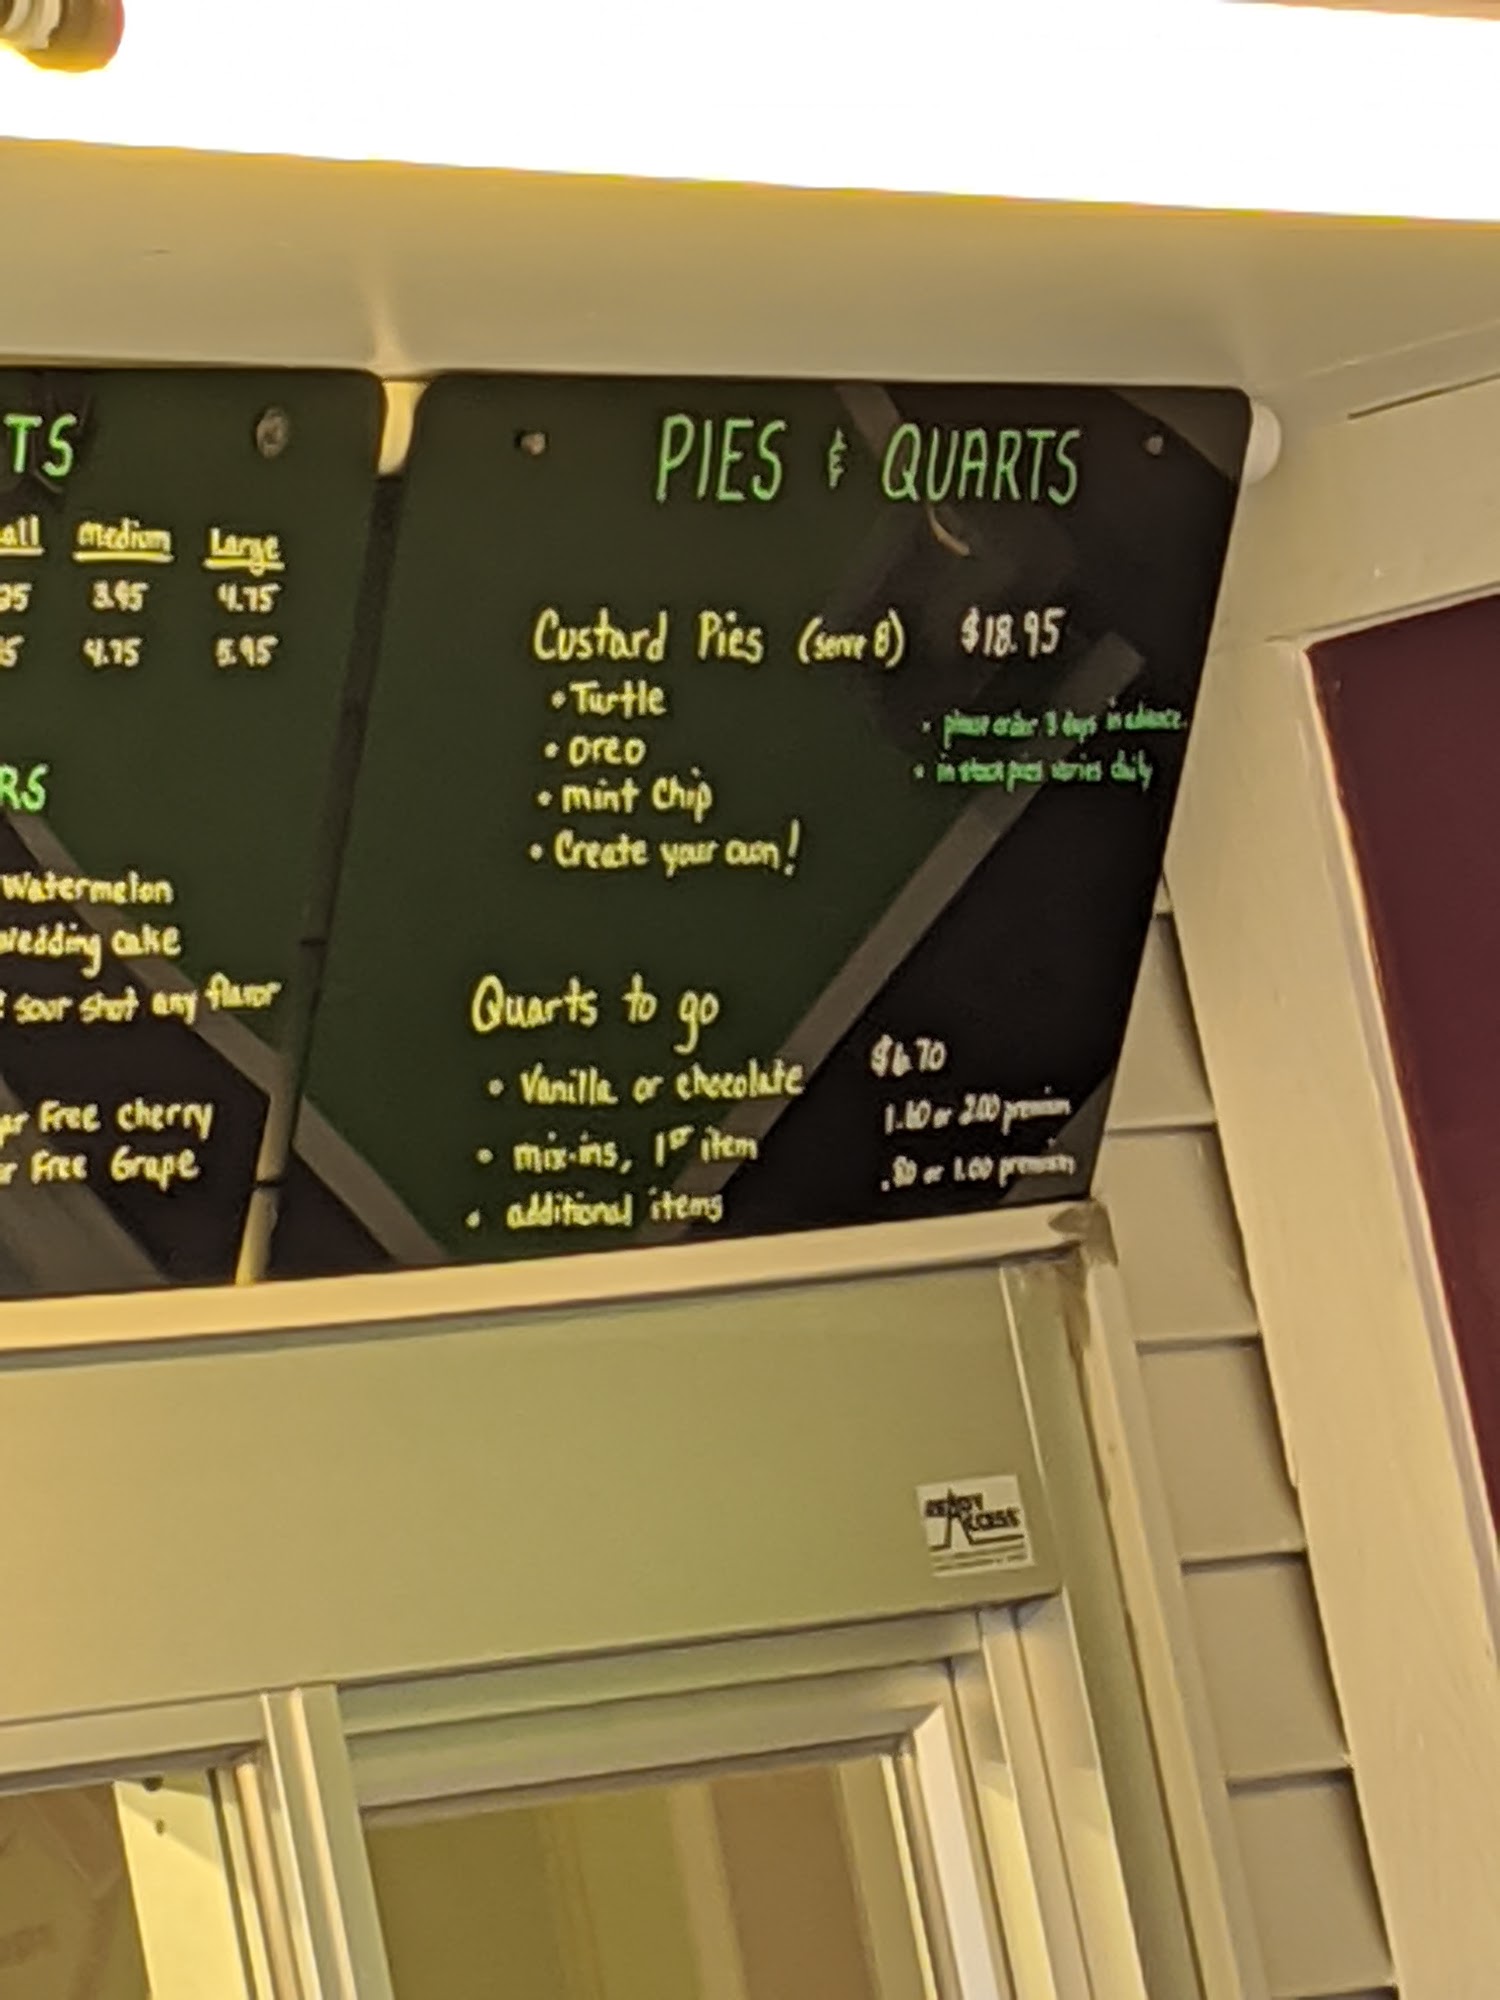 TS
all Medium Large
95 3.95 4.75
5 4.75 5.95
RS
Watermelon
wedding cake
sour shot any flavor
ar Free cherry
r Free Grape
PIES & QUARTS
Custard Pies (serve 8) $18.95
• Turtle
• oreo
• mint chip
• Create your own!
• please order 3 days in advance.
• in stock pies varies daily
Quarts to go
• Vanilla or chocolate $6.70
• mix-ins, 1st item 1.60 or 2.00 premium
• additional items .80 or 1.00 premium
READY ACCESS